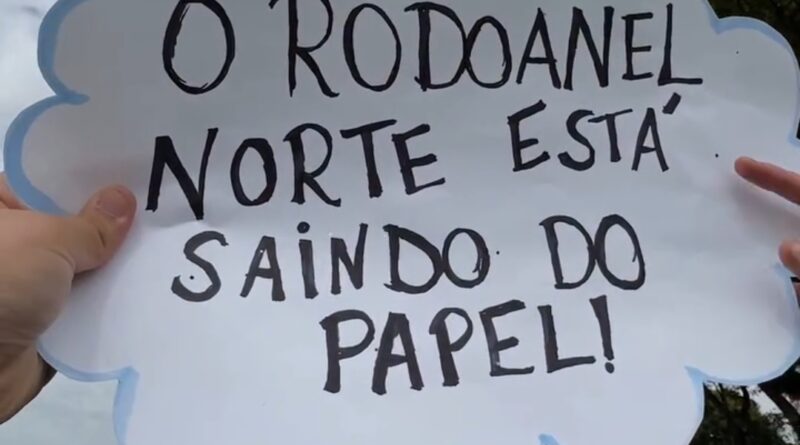 O RODOANEL
NORTE ESTÁ
SAiNDO DO
PAPEL!